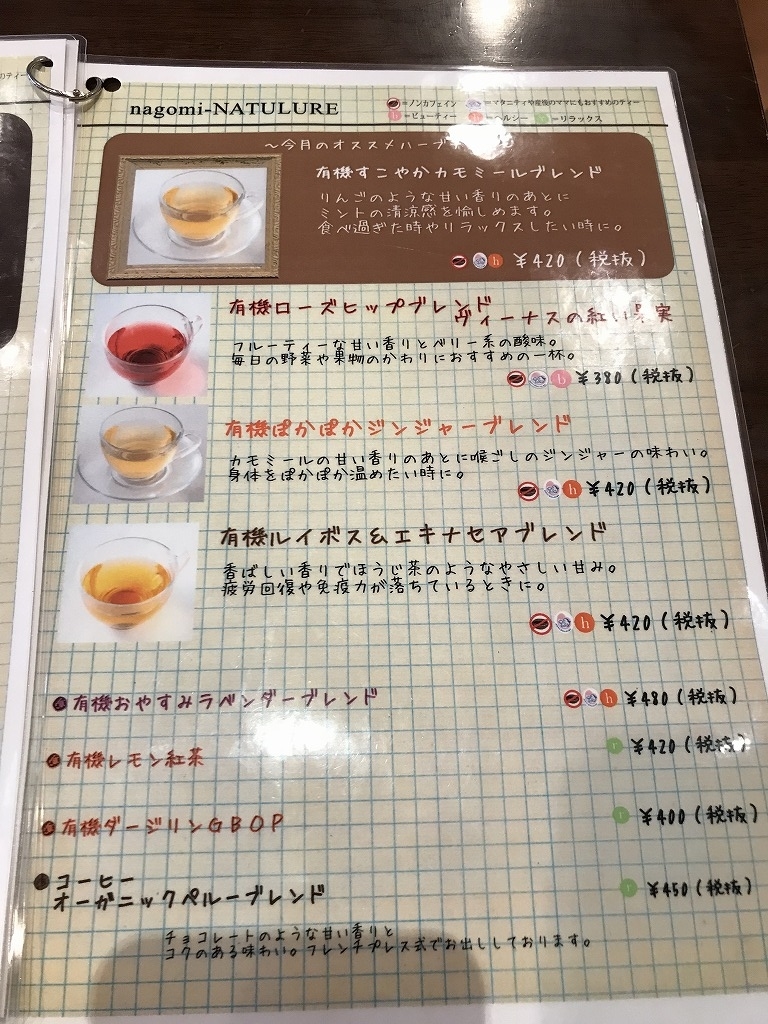 nagomi-NATULURE
=ノンカフェイン
=マタニティや産後のママにもおすすめのティー
=ビューティー
=ヘルシー
=リラックス
～今月のオススメハーブ
有機すこやかカモミールブレンド
りんごのような甘い香りのあとに
ミントの清涼感を愉しめます。
食べ過ぎた時やリラックスしたい時に。
h ¥420(税抜)
有機ローズヒップブレンド
ヴィーナスの紅い果実
フルーティーな甘い香りとベリー系の酸味。
毎日の野菜や果物のかわりにおすすめの一杯。
b ¥380(税抜)
有機ぽかぽかジンジャーブレンド
カモミールの甘い香りのあとに喉ごしのジンジャーの味わい。
身体をぽかぽか温めたい時に。
h ¥420(税抜)
有機ルイボス&エキナセアブレンド
香ばしい香りでほうじ茶のようなやさしい甘み。
疲労回復や免疫力が落ちているときに。
h ¥420(税抜)
有機おやすみラベンダーブレンド
h ¥480(税抜)
有機レモン紅茶
r ¥420(税抜)
有機ダージリンGBOP
¥400(税抜)
コーヒー
オーガニックペルーブレンド
¥450(税抜)
チョコレートのような甘い香りと
コクのある味わい。フレンチプレス式でお出ししております。